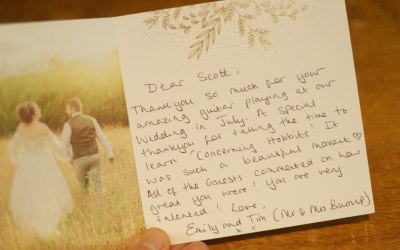 Dear Scott,
Thankyou so much for your
amazing guitar playing at our
Wedding in July. A special
thankyou for taking the time to
learn "Concerning Hobbits". It
was such a beautiful moment ♡
All of the Guests commented on how
great you were! You are very
talented! Love,
Emily and Tim (Mr & Mrs Burrup)
x x